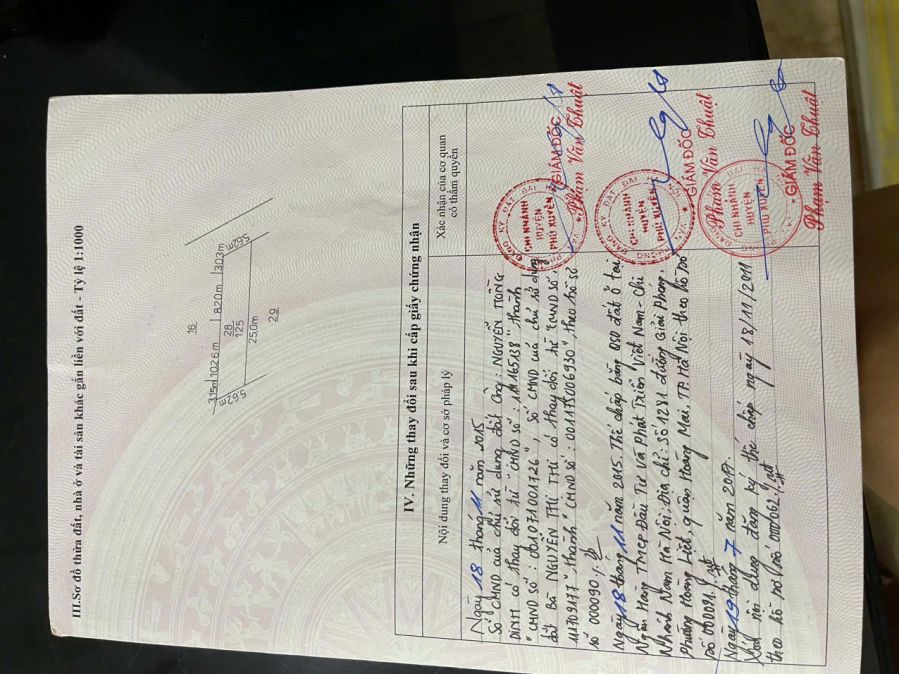 III.Sơ đồ thửa đất, nhà ở và tài sản khác gắn liền với đất - Tỷ lệ 1:1000
16
3.15m 10.26m 8.20m 3.03m
28
125
5.62m
5.62m
25.0m
29
IV. Những thay đổi sau khi cấp giấy chứng nhận
Nội dung thay đổi và cơ sở pháp lý
Xác nhận của cơ quan
có thẩm quyền
Ngày 18 tháng 11 năm 2015
Số CMND của chủ sử dụng đất Ông: NGUYỄN TRỌNG
DINH có thay đổi từ "CMND số: 111165138" thành
"CMND số: 001071001726", Số CMND của chủ sử dụng
đất Bà NGUYỄN THỊ THI có thay đổi từ "CMND số:
111709177" thành "CMND số: 001175006930", theo hồ sơ
số 000090
VĂN PHÒNG ĐĂNG KÝ ĐẤT ĐAI
CHI NHÁNH
HUYỆN
PHÚ XUYÊN
GIÁM ĐỐC
Phạm Văn Thuật
Ngày 18 tháng 11 năm 2015. Thế chấp bằng QSD đất Ở tại
Ngân Hàng TMCP Đầu Tư Và Phát Triển Việt Nam - Chi
Nhánh Nam Hà Nội; Địa chỉ: Số 1281 đường Giải Phóng,
Phường Hoàng Liệt, quận Hoàng Mai, TP. Hà Nội theo hồ sơ
số 000091
VĂN PHÒNG ĐĂNG KÝ ĐẤT ĐAI
CHI NHÁNH
HUYỆN
PHÚ XUYÊN
GIÁM ĐỐC
Phạm Văn Thuật
Ngày 19 tháng 7 năm
Xoá nội dung đăng ký thế chấp ngày 18/11/2011
theo hồ sơ số 000062
CHI NHÁNH
HUYỆN
PHÚ XUYÊN
GIÁM ĐỐC
Phạm Văn Thuật